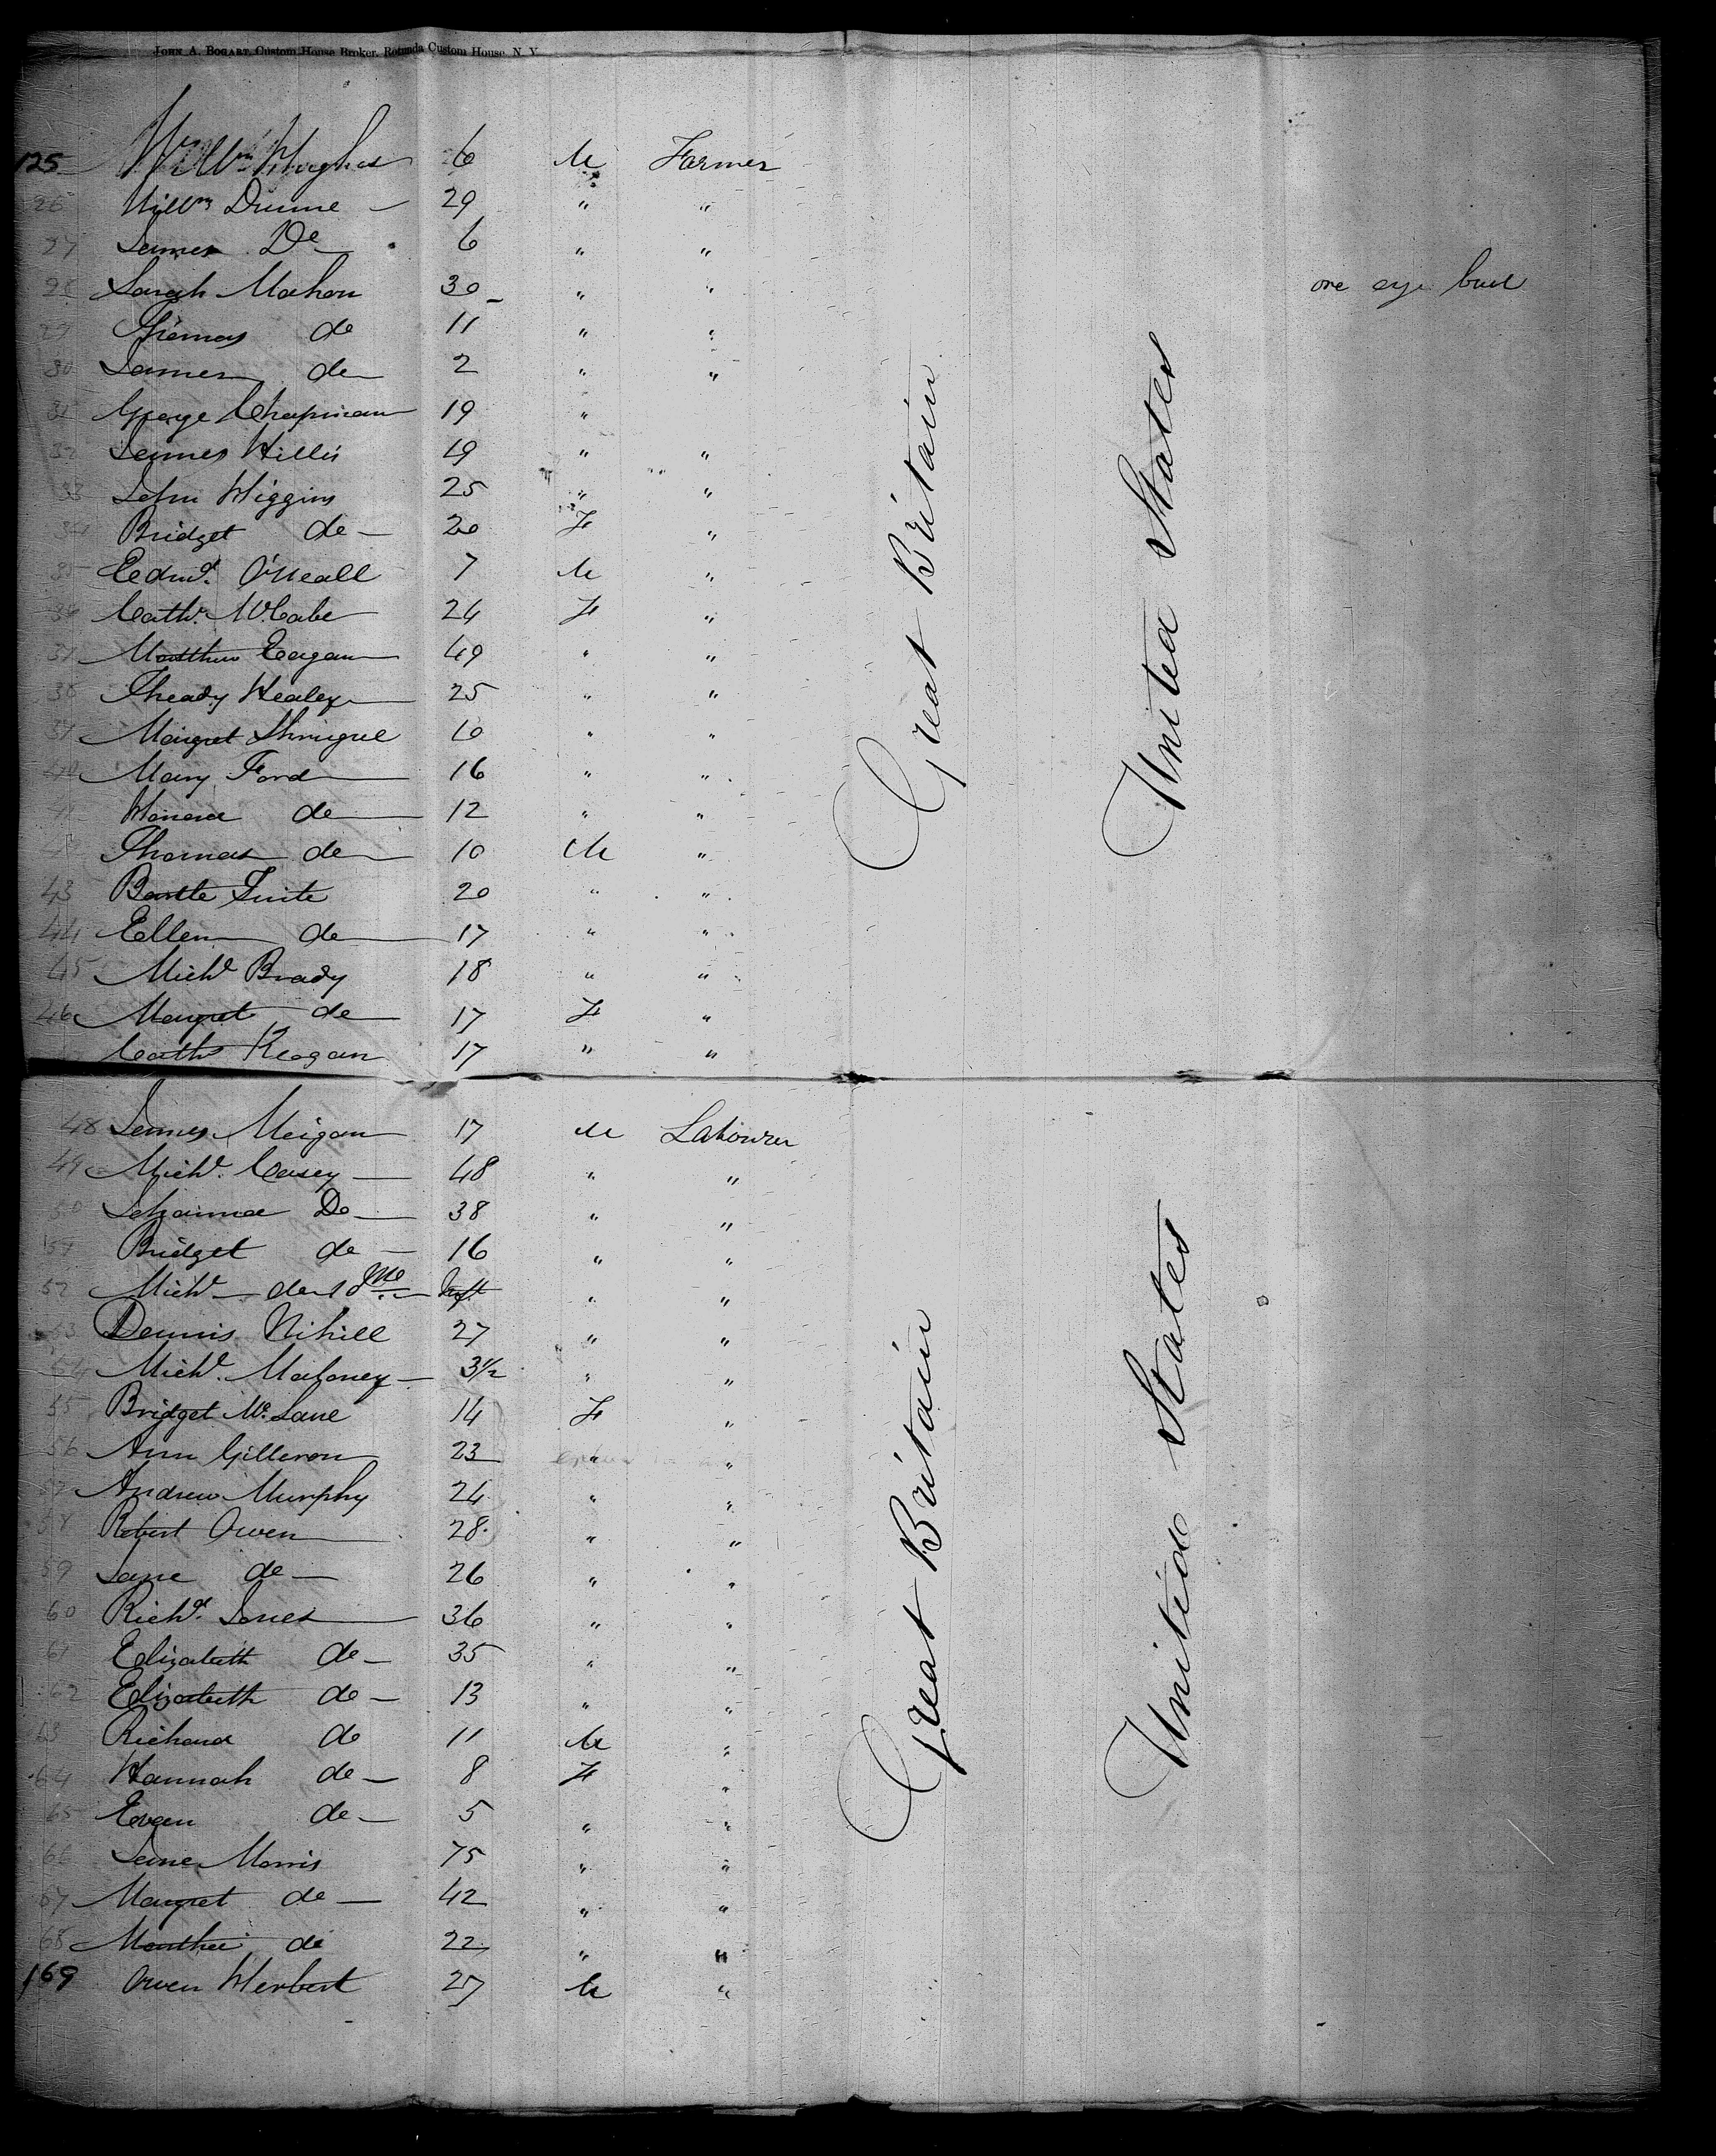 JOHN A. BOGART, Custom House Broker, Rotunda Custom House, N. Y.
125 Hughes 6 M Farmer
26 Willm Dunne 29 " "
27 James Do 6 " "
28 Sarah Mahon 30 " " one eye
29 Thomas do 11 " "
30 James do 2 " "
31 George Chapman 19 "
32 James Willis 19 " "
33 John Higgins 25 " "
34 Bridget do 20 F "
35 Edmd. O'Neall 7 M "
36 Cath. McCabe 24 F "
37 Matthew Eagan 49 " "
38 Thady Healey 25 " "
39 Margret 10 " "
40 Mary Ford 16 " "
41 Honora do 12 " "
42 Thomas do 10 M "
43 Bartle Tuite 20 " "
44 Ellen do 17 " "
45 Michl Brady 18 " "
46 Margret do 17 F "
Cath Keogan 17 " "
Great Britain
United States
48 James Meigan 17 M Labourer
49 Michl. Casey 48 " "
50 Johanna Do 38 " "
51 Bridget do 16 " "
52 Michl do 10 Mo Inft " "
53 Dennis Nihill 27 " "
54 Michl. Maloney 3½ " "
55 Bridget Mc Lane 14 F "
56 Ann Gilleron 23 " "
57 Andrew Murphy 24 " "
58 Robert Owen 28 " "
59 Jane do 26 " "
60 Richd. Jones 36 " "
61 Elizabeth do 35 " "
62 Elizabeth do 13 " "
63 Richard do 11 M "
64 Hannah do 8 F "
65 Evan do 5 " "
66 Jane Morris 75 " "
67 Margret do 42 " "
68 Martha do 22 " "
169 Owen Herbert 27 M "
Great Britain
United States